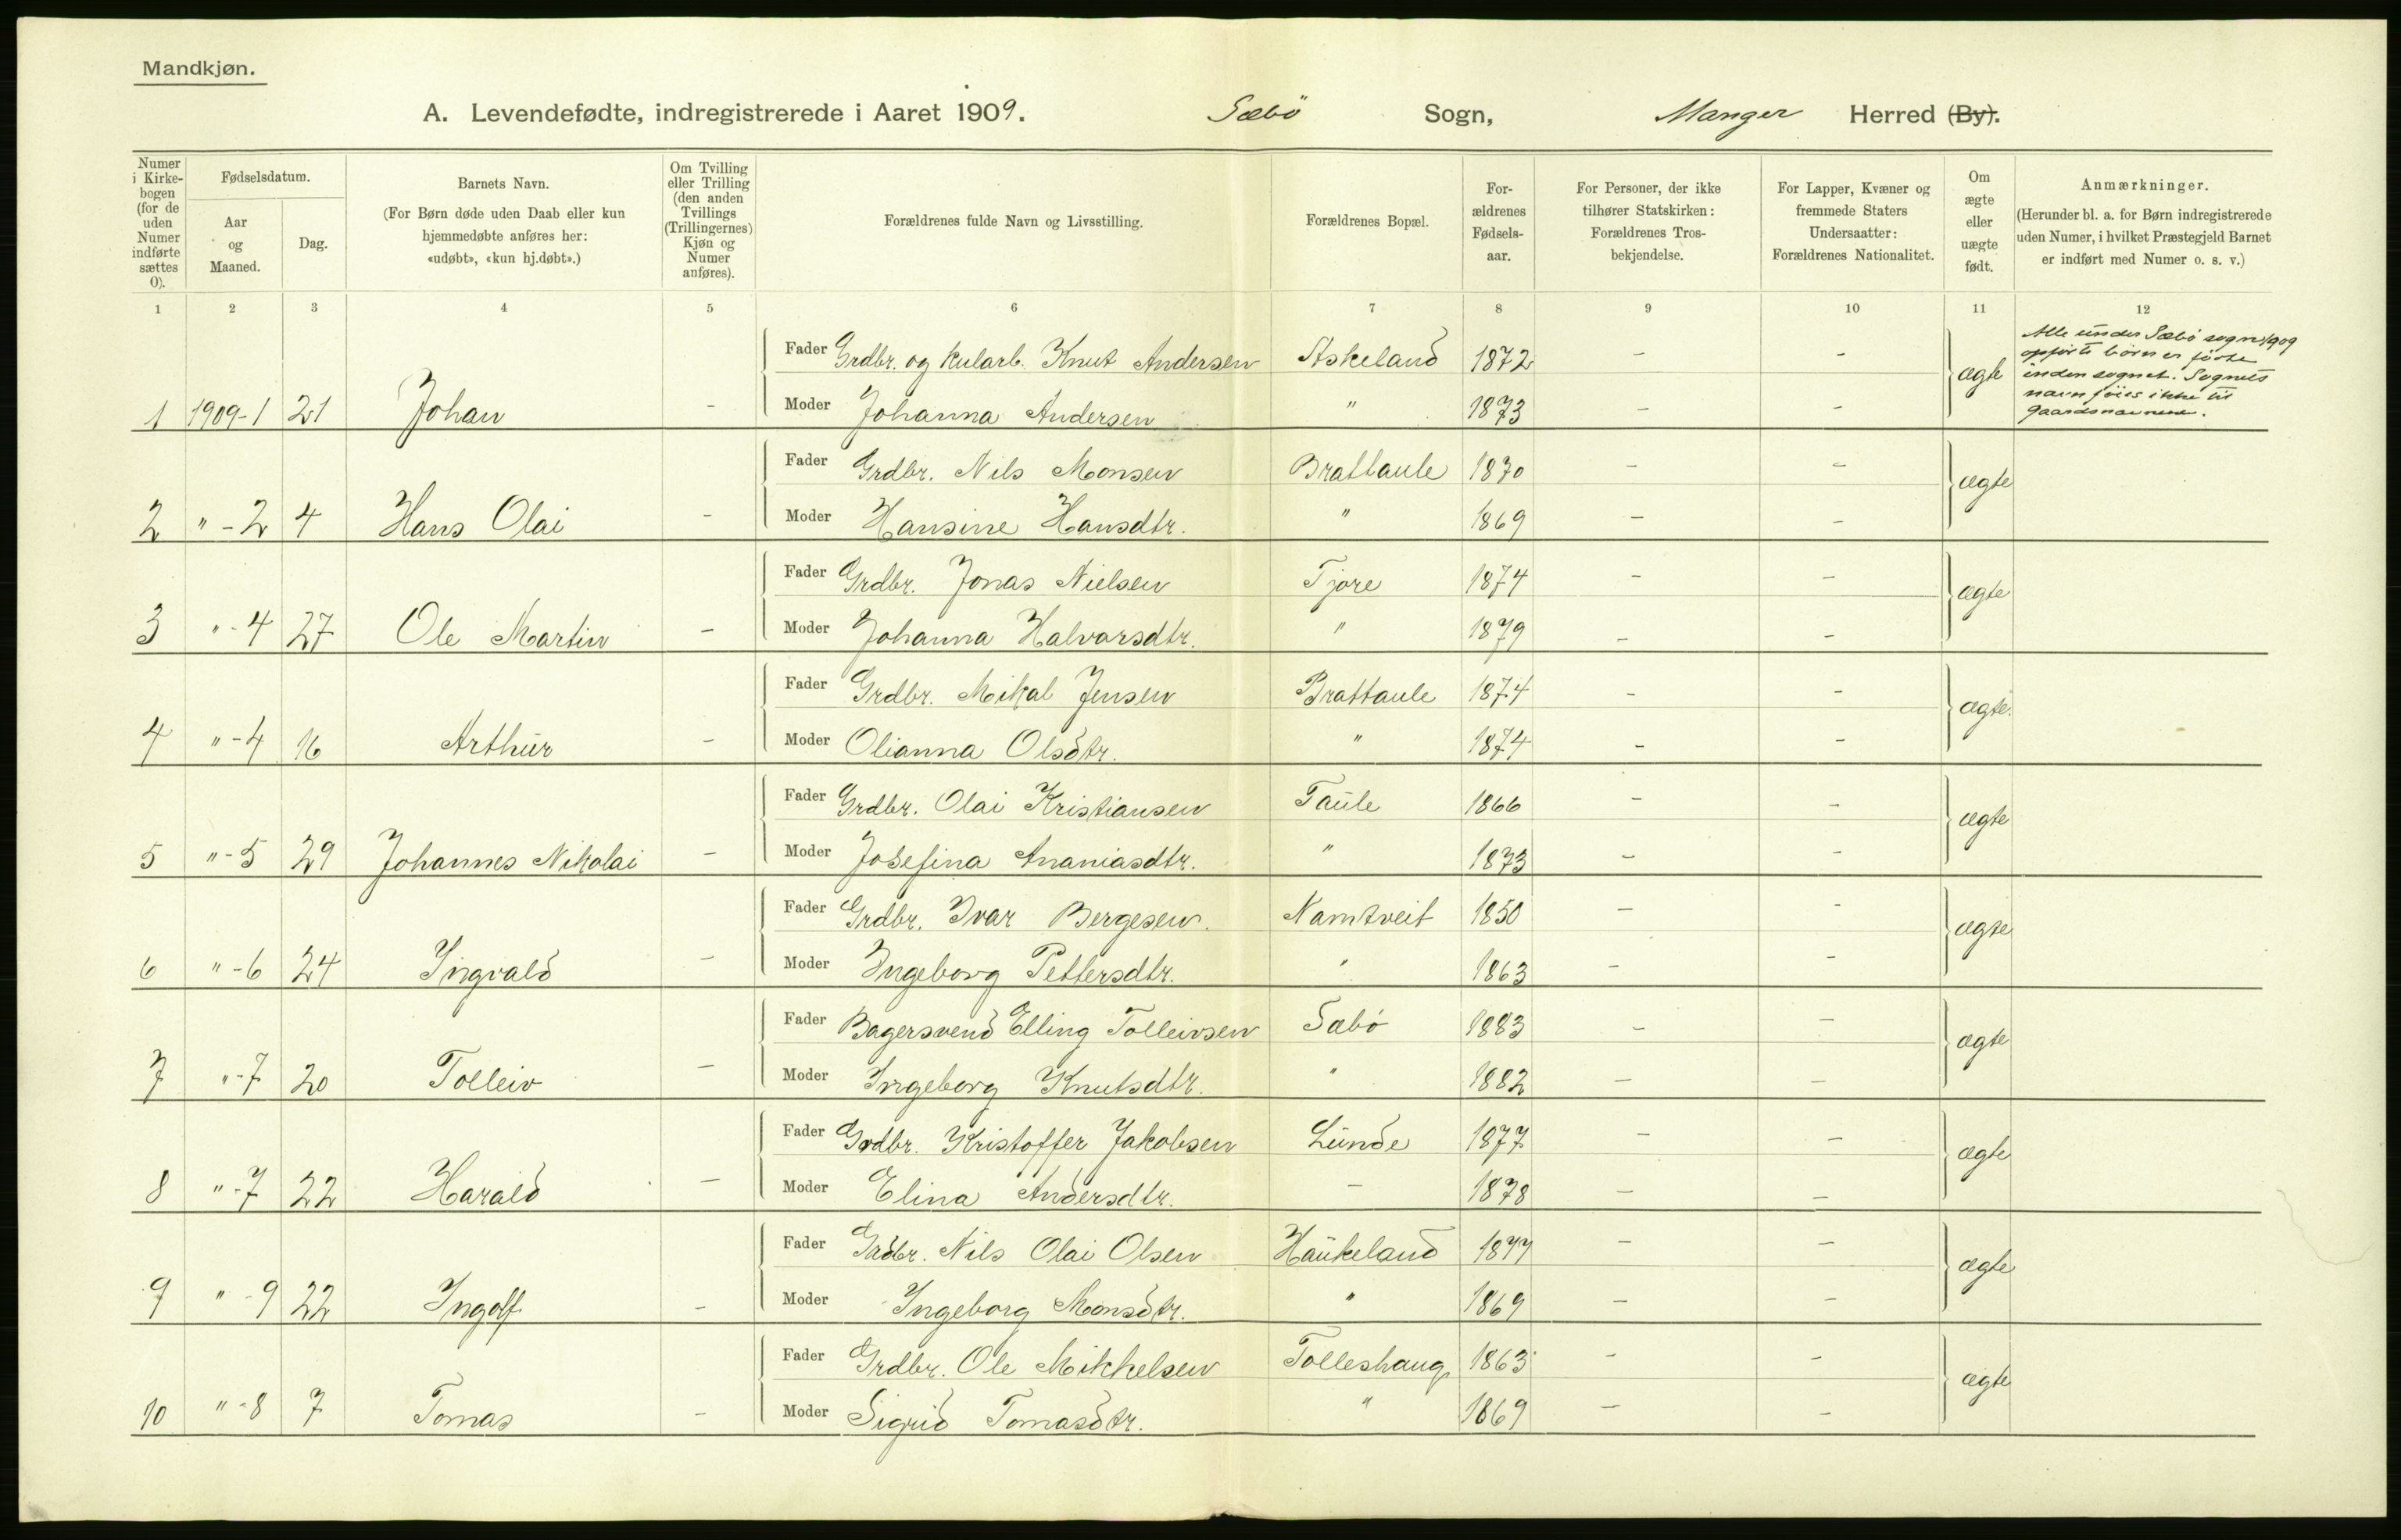 Mandkjøn.
A. Levendefødte, indregistrerede i Aaret 1909. Sæbö Sogn, Manger Herred (By).
Numer i Kirkebogen (for de uden Numer indførte sættes 0).
Fødselsdatum.
Aar og Maaned.
Dag.
Barnets Navn.
(For Børn døde uden Daab eller kun hjemmedøbte anføres her: «udøbt», «kun hj.døbt».)
Om Tvilling eller Trilling (den anden Tvillings (Trillingernes) Kjøn og Numer anføres).
Forældrenes fulde Navn og Livsstilling.
Forældrenes Bopæl.
Forældrenes Fødselsaar.
For Personer, der ikke tilhører Statskirken: Forældrenes Trosbekjendelse.
For Lapper, Kvæner og fremmede Staters Undersaatter: Forældrenes Nationalitet.
Om ægte eller uægte født.
Anmærkninger.
(Herunder bl. a. for Børn indregistrerede uden Numer, i hvilket Præstegjeld Barnet er indført med Numer o. s. v.)
1 2 3 4 5 6 7 8 9 10 11 12
Fader Grdbr. og kularb. Knut Andersen Askeland 1872 - -
1 1909-1 21 Johan - Moder Johanna Andersen " 1873 - - ægte
Alle under Sæbö sogn 1909
opførte børn er fødte
inden sognet. Sognets
navn föies ikke til
gaardsnavnene.
Fader Grdbr. Nils Monsen Brattaule 1870 - -
2 " - 2 4 Hans Olai - Moder Hansine Hansdtr. " 1869 - - ægte
Fader Grdbr. Jonas Nielsen Tjore 1874 - -
3 " - 4 27 Ole Martin - Moder Johanna Halvorsdtr. " 1879 - - ægte
Fader Grdbr. Mikal Jensen Brattaule 1874 - -
4 " - 4 16 Arthur - Moder Olianna Olsdtr. " 1874 - - ægte
Fader Grdbr. Olai Kristiansen Taule 1866 - -
5 " - 5 29 Johannes Nikolai - Moder Josefina Ananiasdtr. " 1873 - - ægte
Fader Grdbr. Ivar Bergesen. Namtveit 1850 - -
6 " - 6 24 Ingvald - Moder Ingeborg Pettersdtr. " 1863 - - ægte
Fader Bagersvend Elling Tolleivsen Sæbö 1883 - -
7 " - 7 20 Tolleiv - Moder Ingeborg Knutsdtr. " 1882 - - ægte
Fader Grdbr. Kristoffer Jakobsen Lunde 1877 - -
8 " - 7 22 Harald - Moder Elina Andersdtr. - 1878 - - ægte
Fader Grdbr. Nils Olai Olsen Haukeland 1877 - -
9 " - 9 22 Ingolf - Moder Ingeborg Monsdtr. " 1869 - - ægte
Fader Grdbr. Ole Mikkelsen Tolleshaug 1863 - -
10 " - 8 7 Tomas - Moder Sigrid Tomasdtr. " 1869 - - ægte